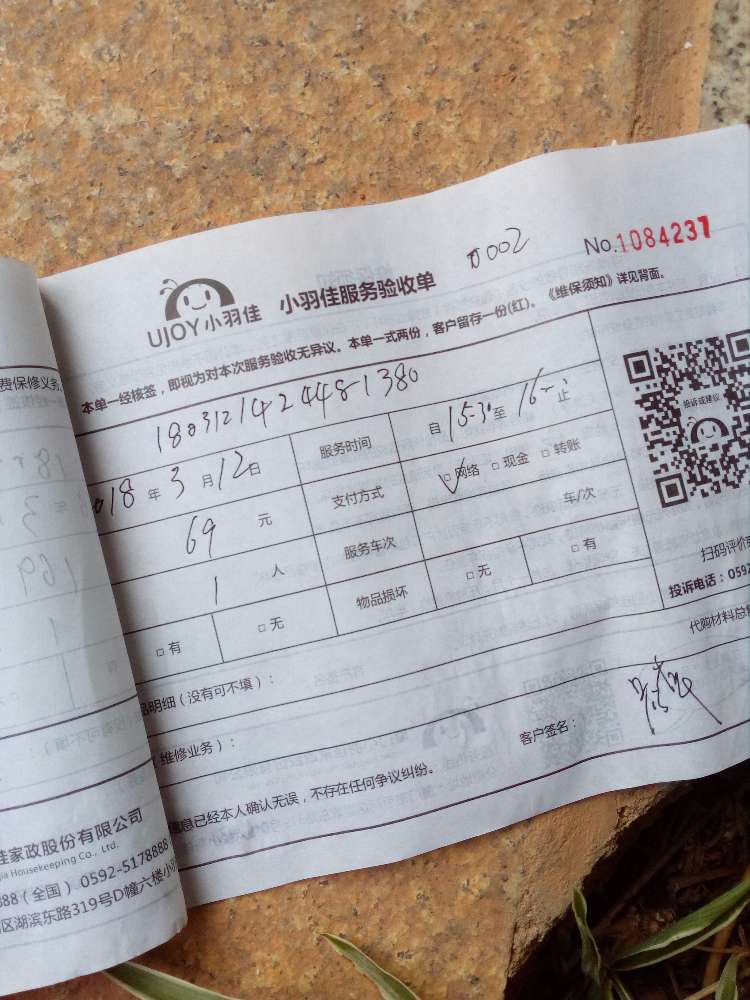 0002
No.1084237
UJOY小羽佳 小羽佳服务验收单
本单一经核签，即视为对本次服务验收无异议。本单一式两份，客户留存一份(红)。《维保须知》详见背面。
1803121424481380
018年3月12日 服务时间 自15:30至16 止
69元 支付方式 □网络 □现金 □转账
1人 服务车次 车/次
□有 □无 物品损坏 □无 □有
投诉或建议
扫码评价
投诉电话：0592
代购材料总
品明细（没有可不填）：
维修业务）：
客户签名：
信息已经本人确认无误，不存在任何争议纠纷。
费保修义务
佳家政股份有限公司
jia Housekeeping Co., Ltd.
888（全国）0592-5178888
区湖滨东路319号D幢六楼小